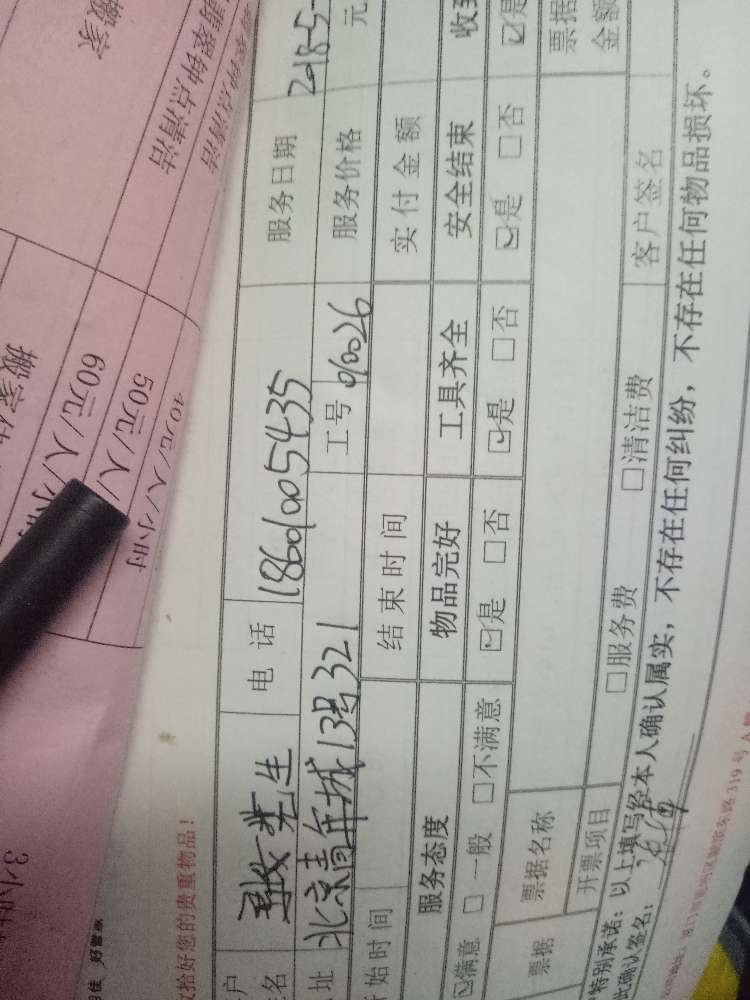 搬家
翡翠钟点清洁
60元/人/小时
50元/人/
40元/人/小时
3小时
收拾好您的贵重物品！
先生 电话 18601005435 服务日期 2018-5-
址 北京青年城13号321 工号 010026 服务价格 元
开始时间 结束时间 实付金额
服务态度 物品完好 工具齐全 安全结束 收到
☑满意 □一般 □不满意 ☑是 □否 ☑是 □否 ☑是 □否 ☑是
票据 票据名称 票据金额
开票项目 □服务费 □清洁费 客户签名
特别承诺：以上填写经本人确认属实，不存在任何纠纷，不存在任何物品损坏。
确认签名：
319号